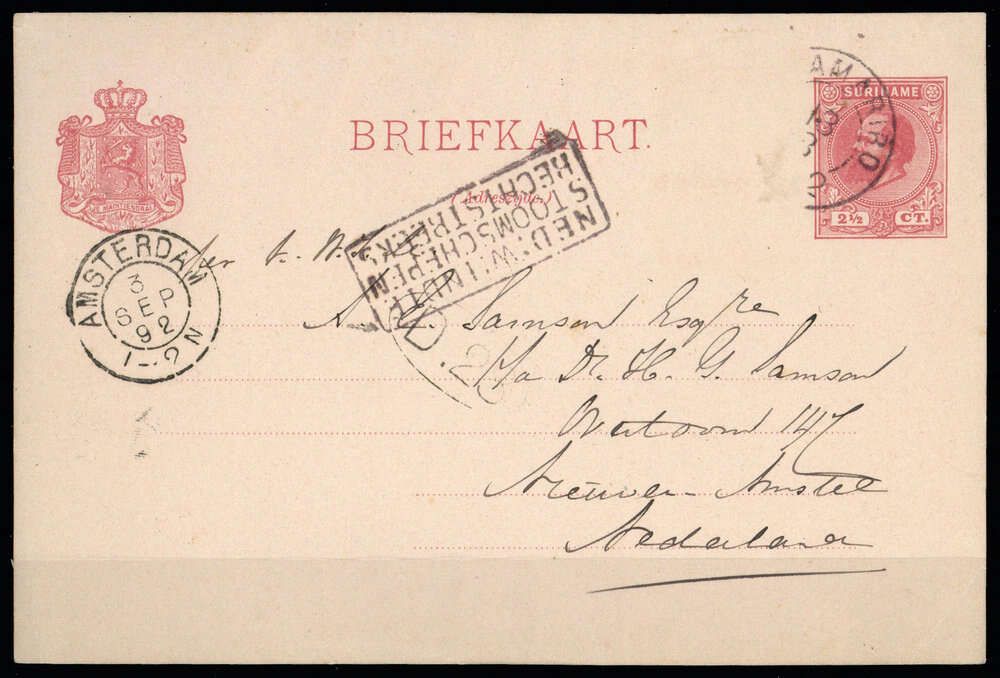 AMARIBO
13
8
SURINAME
2½ CT.
BRIEFKAART.
(Adreszijde.)
JE MAINTIENDRAI
NED:W:INDIE
STOOMSCHEPEN
RECHTSTREEKS
AMSTERDAM
3
SEP
92
1-2 N
per
A. Samson Esqre
c/o Dr. H. G. Samson
Overtoom 147
Nieuwer-Amstel
Nederland